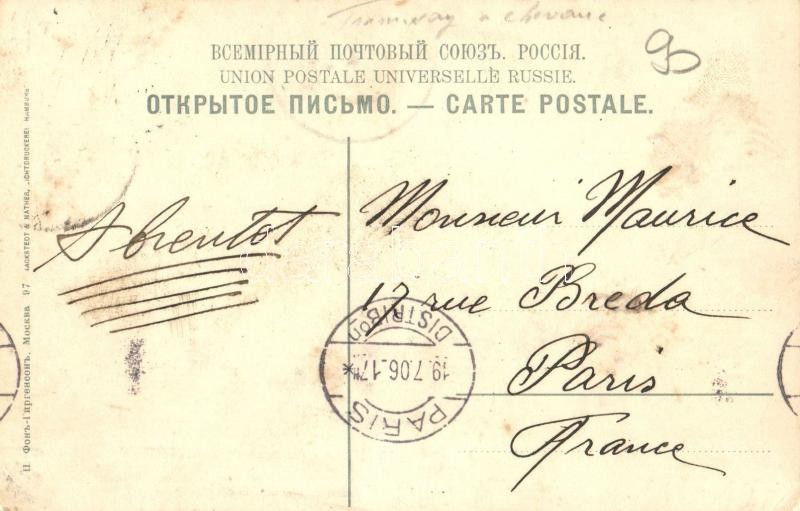 Tramway a chevaux
95
ВСЕМІРНЫЙ ПОЧТОВЫЙ СОЮЗЪ. РОССІЯ.
UNION POSTALE UNIVERSELLE RUSSIE.
ОТКРЫТОЕ ПИСЬМО. — CARTE POSTALE.
A bientot
Monsieur Maurice
17 rue Breda
Paris
France
PARIS
19.7.06.17
DISTRIBon
П. Фонъ-Гиргенсонъ, Москва 97 LACKSTEDT & NÄTHER, LICHTDRUCKEREI, HAMBURG